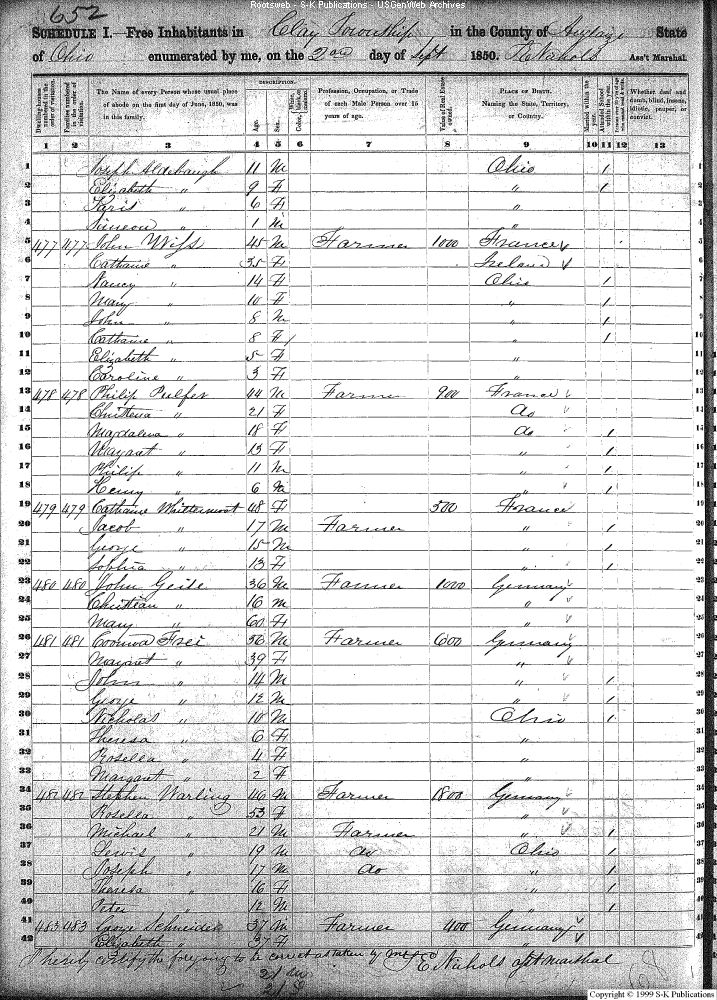 Rootsweb - S-K Publications - USGenWeb Archives
652
SCHEDULE I.—Free Inhabitants in Clay Township in the County of Auglaize State
of Ohio enumerated by me, on the 2nd day of Sept 1850. Ass't Marshal.
DESCRIPTION.
Dwelling-houses numbered in the order of visitation.
Families numbered in the order of visitation.
The Name of every Person whose usual place of abode on the first day of June, 1850, was in this family.
Age. Sex. Color,
Profession, Occupation, or Trade of each Male Person over 15 years of age.
Value of Real Estate owned.
PLACE OF BIRTH. Naming the State, Territory, or Country.
Married within the year. Attended School within the year.
Whether deaf and dumb, blind, insane, idiotic, pauper, or convict.
1 2 3 4 5 6 7 8 9 10 11 12 13
1 Joseph Aldebaugh 11 M Ohio / 1
2 Elizabeth " 9 F " / 2
3 " 6 F " 3
4 Simeon " 1 M " 4
5 477 477 John Wiss 45 M Farmer 1000 France 5
6 Catharine " 35 F Ireland 6
7 Nancy " 14 F Ohio / 7
8 Mary " 10 F " / 8
9 John " 8 M " / 9
10 Catharine " 8 F " / 10
11 Elizabeth " 5 F " 11
12 Caroline " 3 F " 12
13 478 478 Philip Pulfer 44 M Farmer 900 France 13
14 " 21 F do 14
15 Magdalena " 18 F do / 15
16 Margaret " 13 F " / 16
17 Philip " 11 M " / 17
18 Henry " 6 M " / 18
19 479 479 Catharine Whittermost 48 F 500 France 19
20 Jacob " 17 M Farmer " / 20
21 George " 15 M " / 21
22 Sophia " 13 F " / 22
23 480 480 John Geile 36 M Farmer 1000 Germany 23
24 Christian " 16 M " 24
25 Mary " 60 F " 25
26 481 481 Frei 56 M Farmer 600 Germany 26
27 Margaret " 39 F " 27
28 John " 14 M " / 28
29 George " 12 M " / 29
30 Nicholas " 10 M Ohio / 30
31 Theresa " 6 F " 31
32 Rosella " 4 F " 32
33 Margaret " 2 F " 33
34 482 482 Stephen Warling 46 M Farmer 1800 Germany 34
35 Rosella " 53 F " 35
36 Michael " 21 M Farmer " / 36
37 Lewis " 19 M do Ohio / 37
38 Joseph " 17 M do " / 38
39 Theresa " 16 F " / 39
40 Peter " 12 M " / 40
41 483 483 George Schneider 37 M Farmer 400 Germany 41
42 Elizabeth " 37 F " 42
I hereby certify the foregoing to be correct as taken by me Nichols Ast Marshal
21 M
21 F
Copyright © 1999 S-K Publications